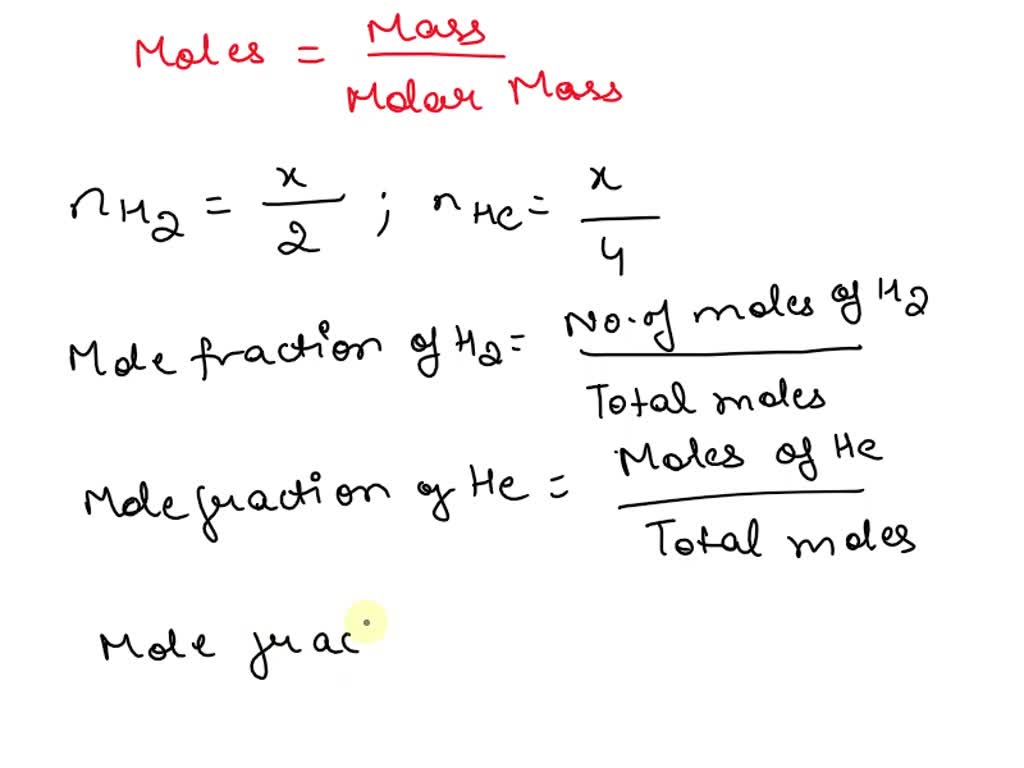 Moles = Mass / Molar Mass
nH2 = x/2 ; nHe = x/4
Mole fraction of H2 = No. of moles of H2 / Total moles
Mole fraction of He = Moles of He / Total moles
Mole frac